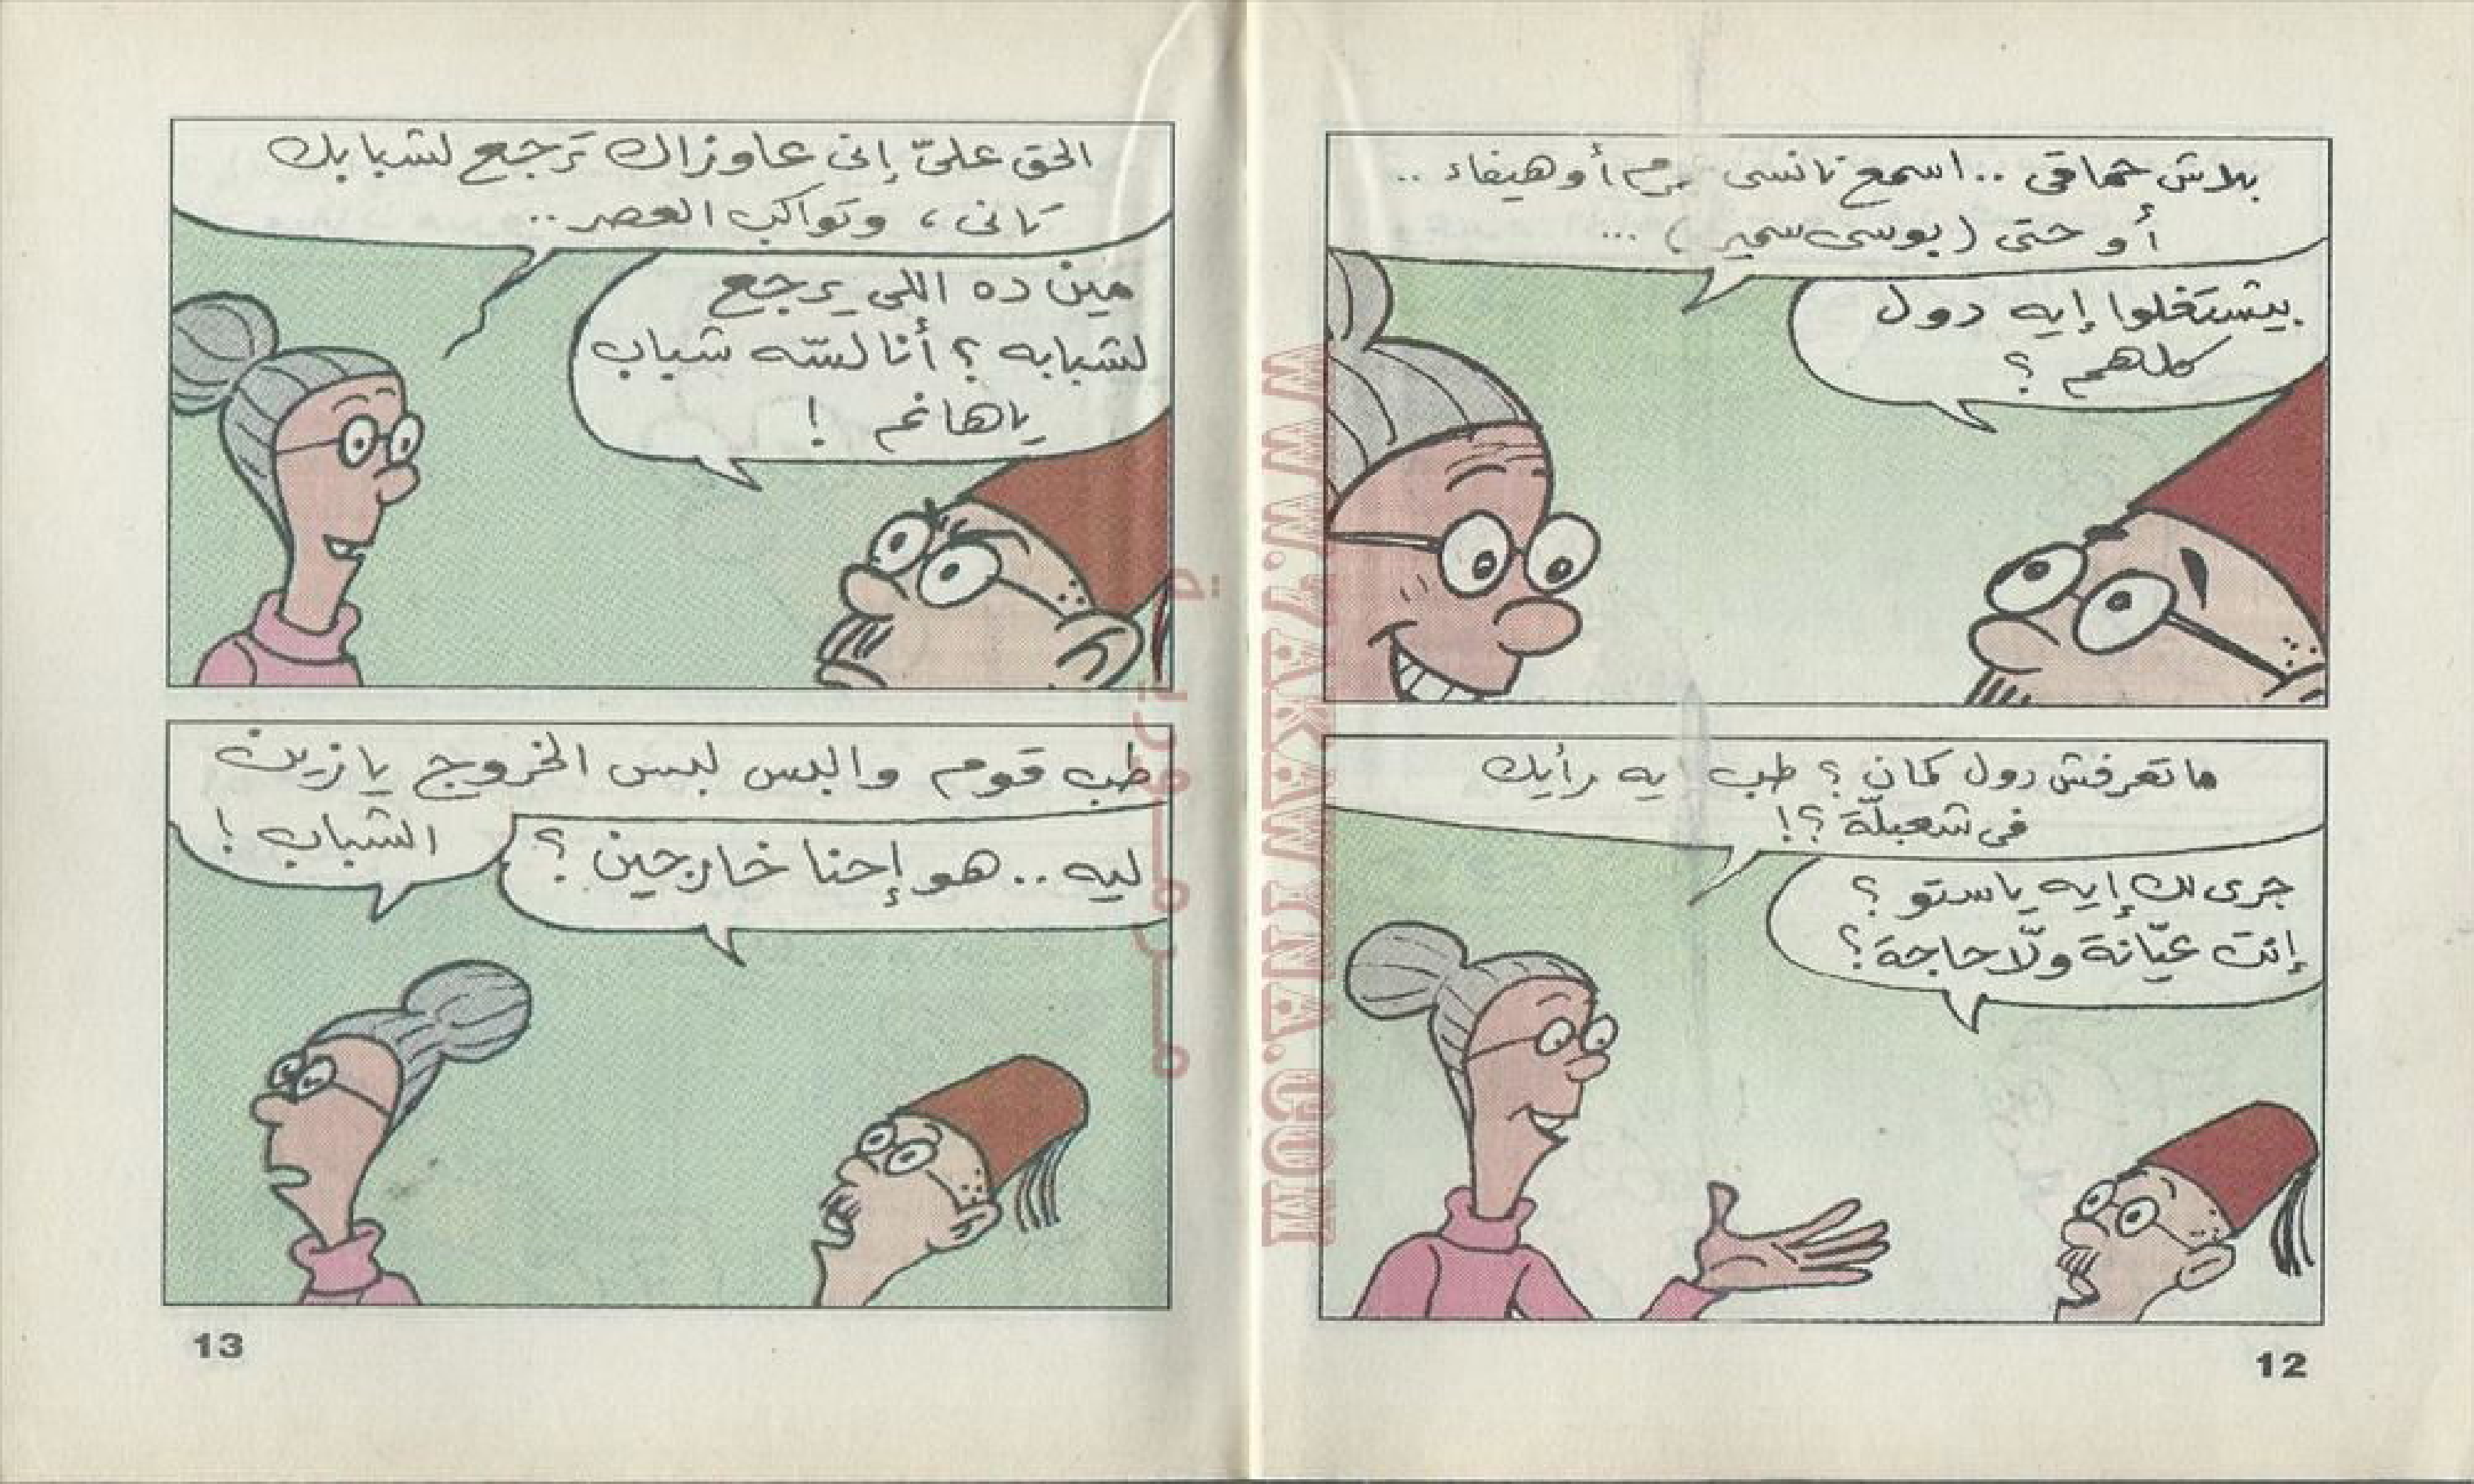 بلاش حماقى .. اسمع نانسى عجرم أو هيفاء ..
أو حتى (بوسى سمير) ...
بيشتغلوا إيه دول
كلهم ؟
ما تعرفش دول كمان ؟ طب إيه رأيك
فى شعبلّة ؟!
جرى لك إيه ياستو ؟
إنت عيّانة ولّا حاجة ؟
12
الحق علىّ إنى عاوزاك ترجع لشبابك
تانى ، وتواكب العصر ..
مين ده اللى يرجع
لشبابه ؟ أنا لسّه شباب
ياهانم !
طب قوم والبس لبس الخروج يا زين
الشباب !
ليه .. هو إحنا خارجين ؟
13